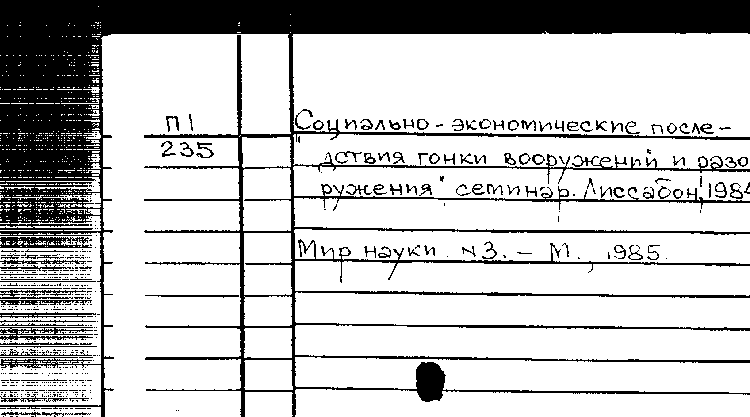 П1
235
Социально-экономические после-
"дствия гонки вооружений и разо
ружения" семинар. Лиссабон, 1984
Мир науки. N3. - М., 1985.